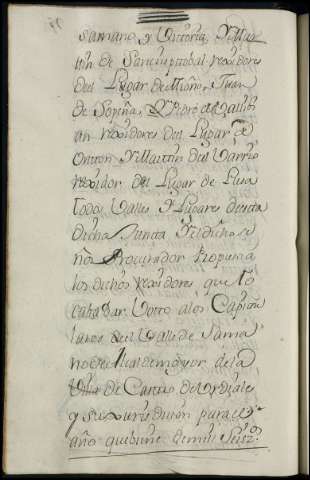 Samano y Victoria, y Mar
tin de Sancristobal rexidores
del Lugar de Mioño, Juan
de Sopeña, y Pedro de Talled
an rexidores del Lugar de
Onton y Martin del Varrio
rexidor del Lugar de Lusa
todos Valles y Lugares de esta
dicha Junta y el dicho se
ñor Procurador Propuso a
los dichos rexidores que to
caba dar Votto a los Capitu
lares del Valle de Sama
no de Alcalde mayor de la
Villa de Castro de Urdiales
y su Jurisdicion para el
año que biene de mill Seisz.os